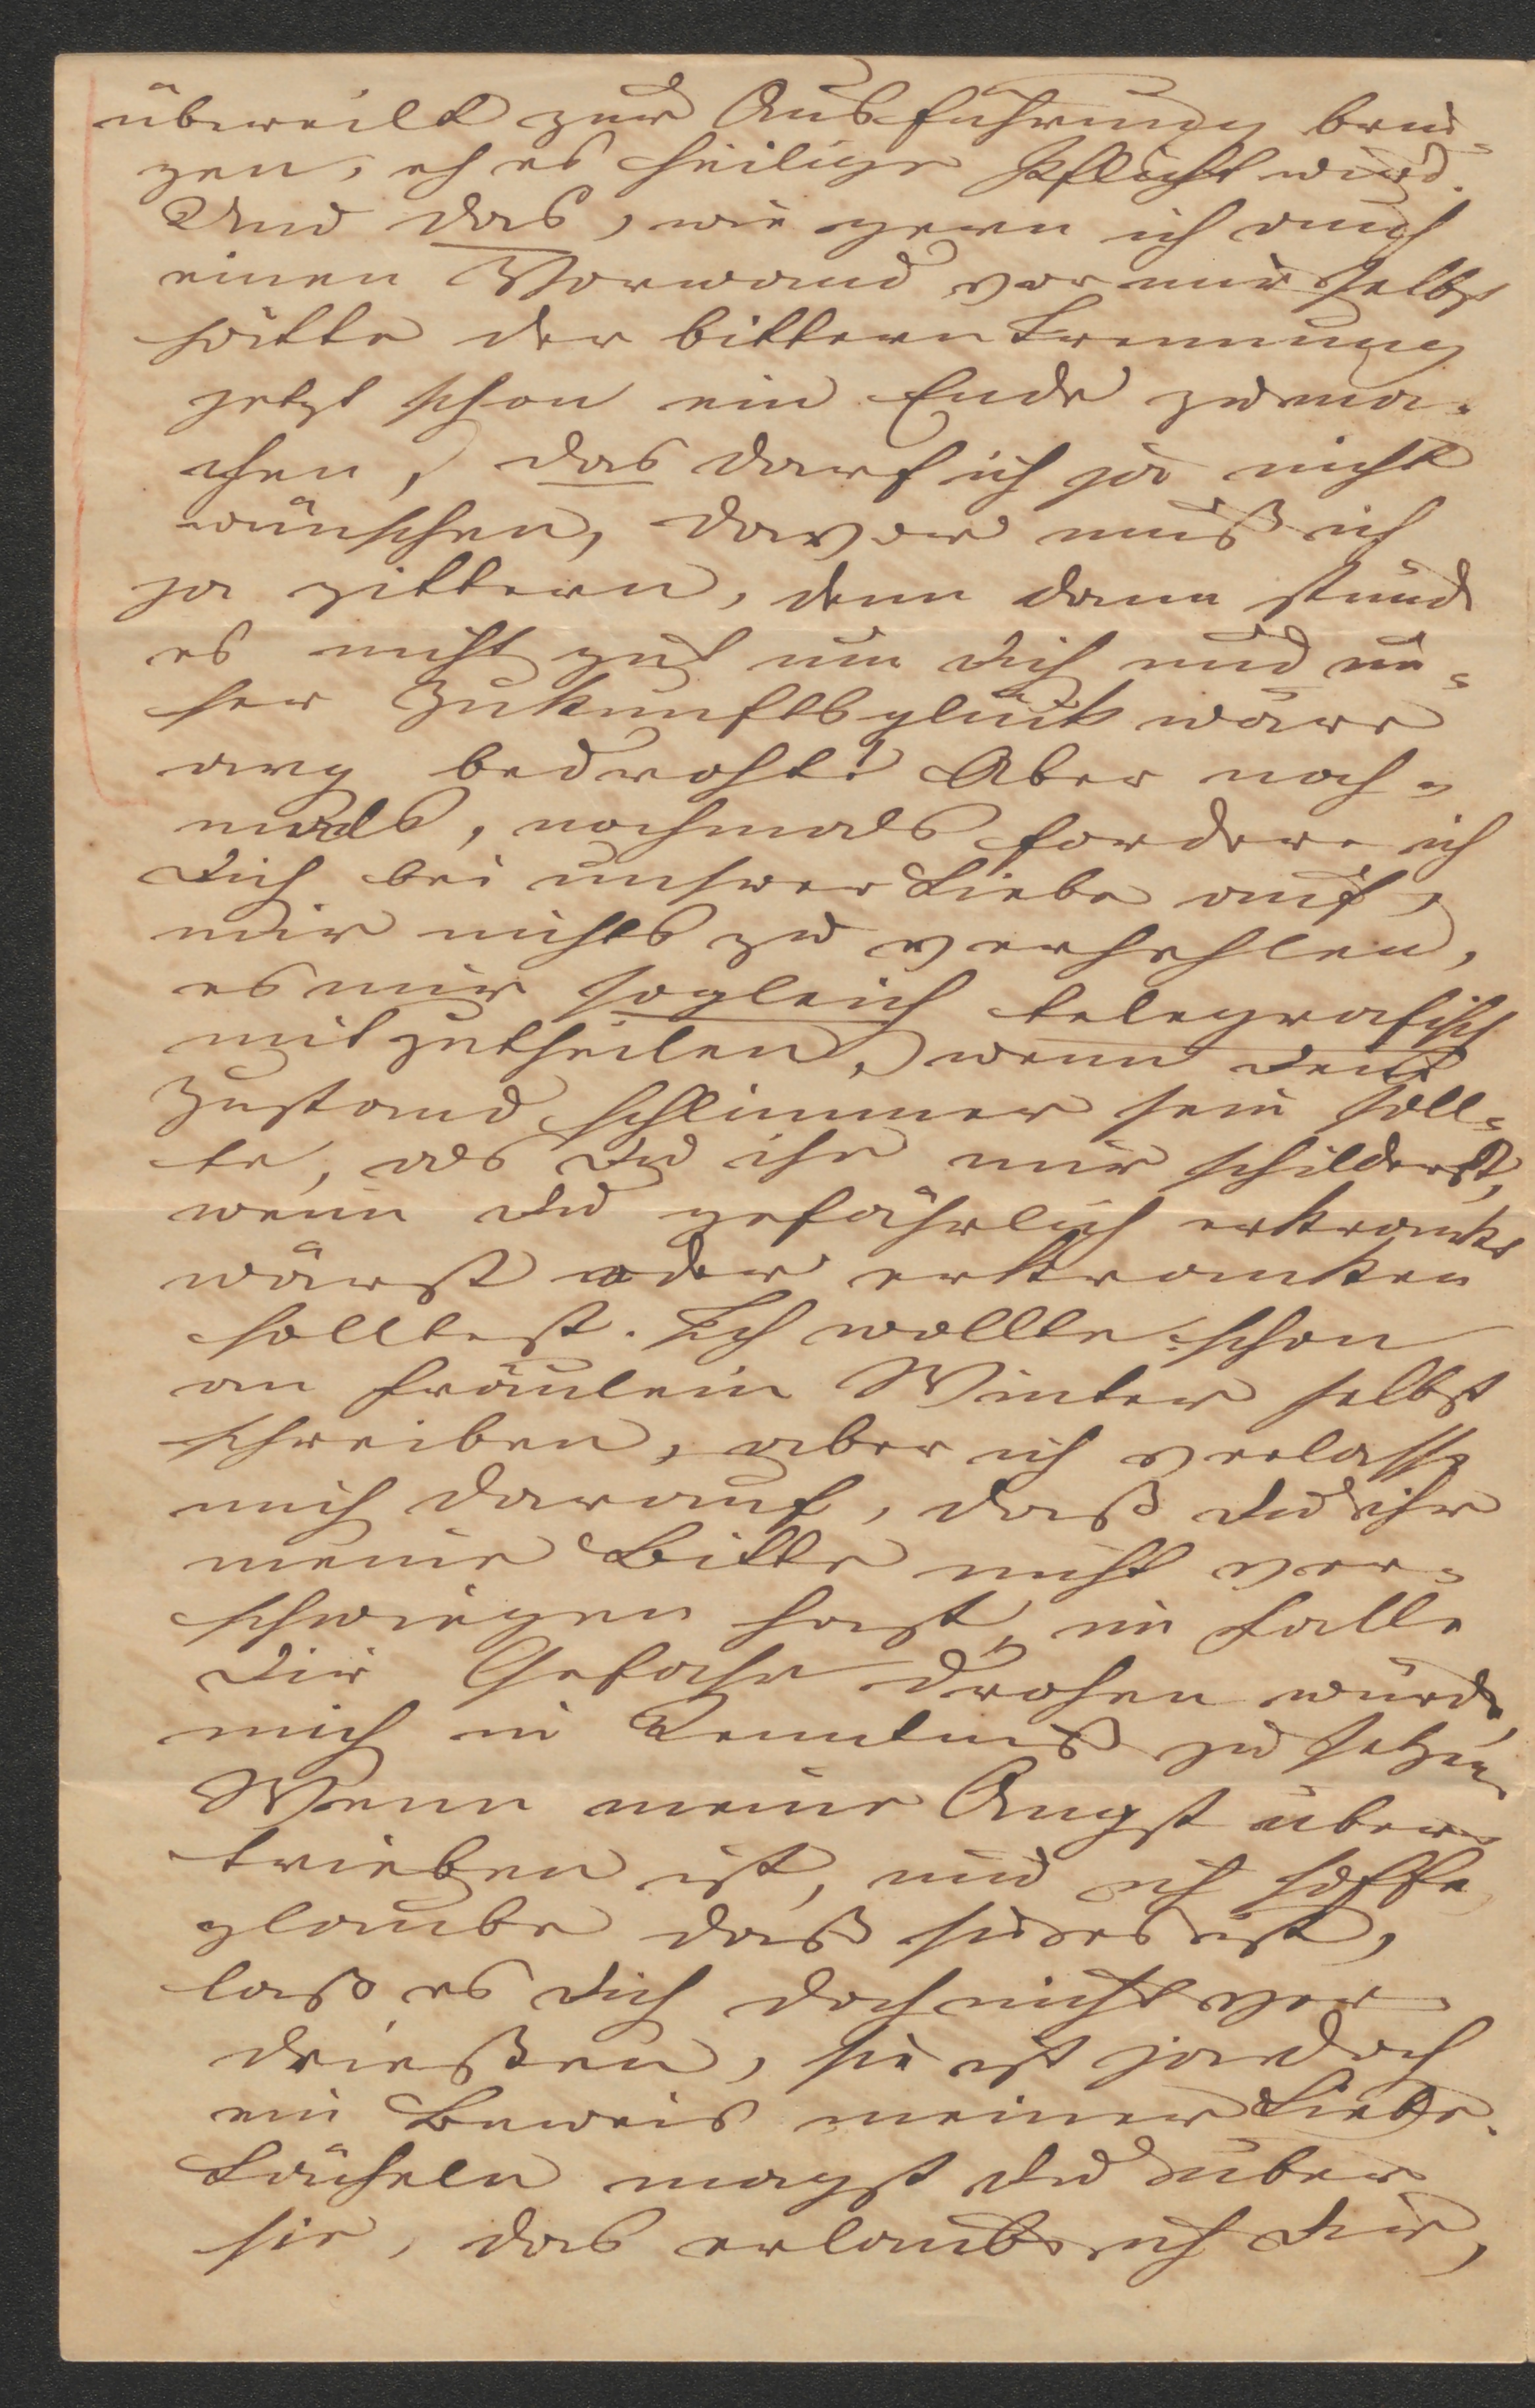 übereilt zur Ausführung brin-
gen, eh es heilige Pflicht wird.
Und das, wie gern ich auch
einen Vorwand vor mir selbst
hätte der bittern Trennung
jetzt schon ein Ende zu ma-
chen, das darf ich ja nicht
wünschen, davor muß ich
ja zittern, denn dann stünd
es nicht gut um Dich und un-
ser Zukunftsglück wäre
arg bedroht! Aber noch-
mals, nochmals fordere ich
Dich bei unserer Liebe auf,
mir nichts zu verhehlen,
es mir sogleich telegrafisch
mitzutheilen, wenn Dein
Zustand schlimmer sein soll-
te, als Du ihn mir schilderst,
wenn Du gefährlich erkrankt
wärst oder erkranken
solltest. Ich wollte schon
an Fräulein Winter selbst
schreiben, aber ich verlasse
mich darauf, daß Du ihr
meine Bitte nicht ver-
schwiegen hast, im Falle
Dir Gefahr drohen würde,
mich in Kenntniß zu setzen.
Wenn meine Angst über-
trieben ist, und ich hoffe,
glaube daß sie es ist,
laß es Dich doch nicht ver-
drießen, sie ist ja doch
ein Beweis meiner Liebe.
Lächeln magst Du über
sie, das erlaube ich Dir,